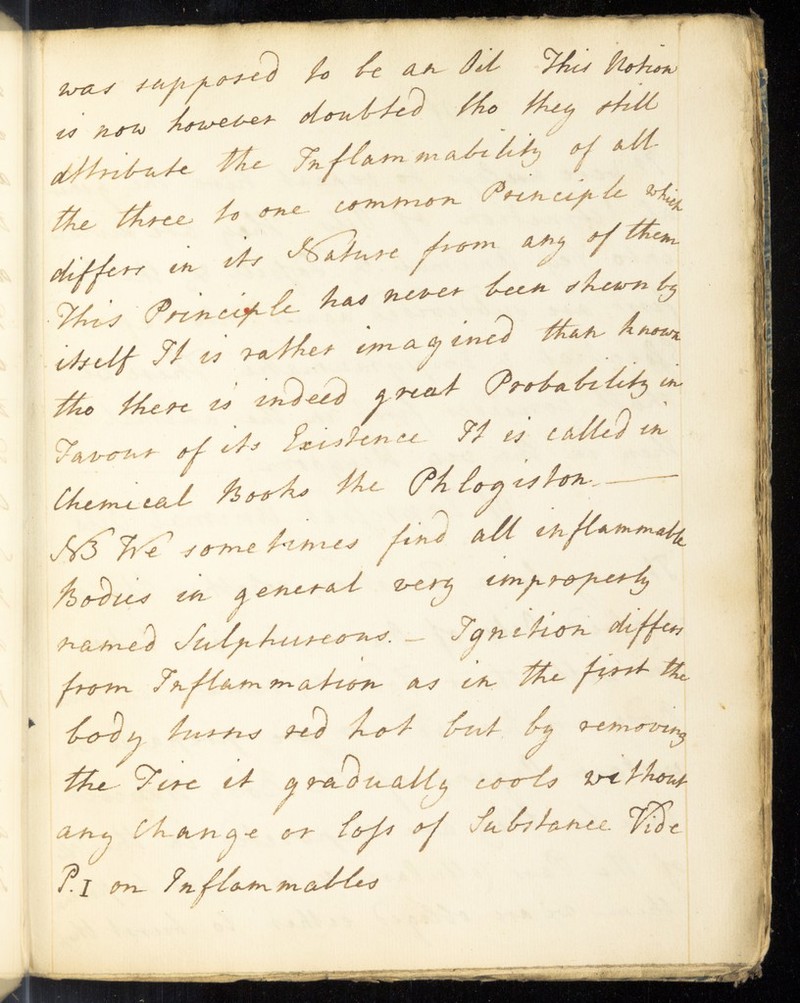 was supposed to be an Oil This Notion
is now however doubted tho they still
attribute the Inflammability of all
the three to one common Principle which
differs in its Nature from any of them
This Principle has never been shewn by
itself It is rather imagined than known
tho there is indeed great Probability in
Favour of its Existence It is called in
Chemical Books the Phlogiston —
NB We sometimes find all inflammable
Bodies in general very improperly
named Sulphureous. — Ignition differs
from Inflammation as in the first the
body turns red hot but by removing
the Fire it gradually cools without
any Change or loſs of Substance Vide
P. I on Inflammables